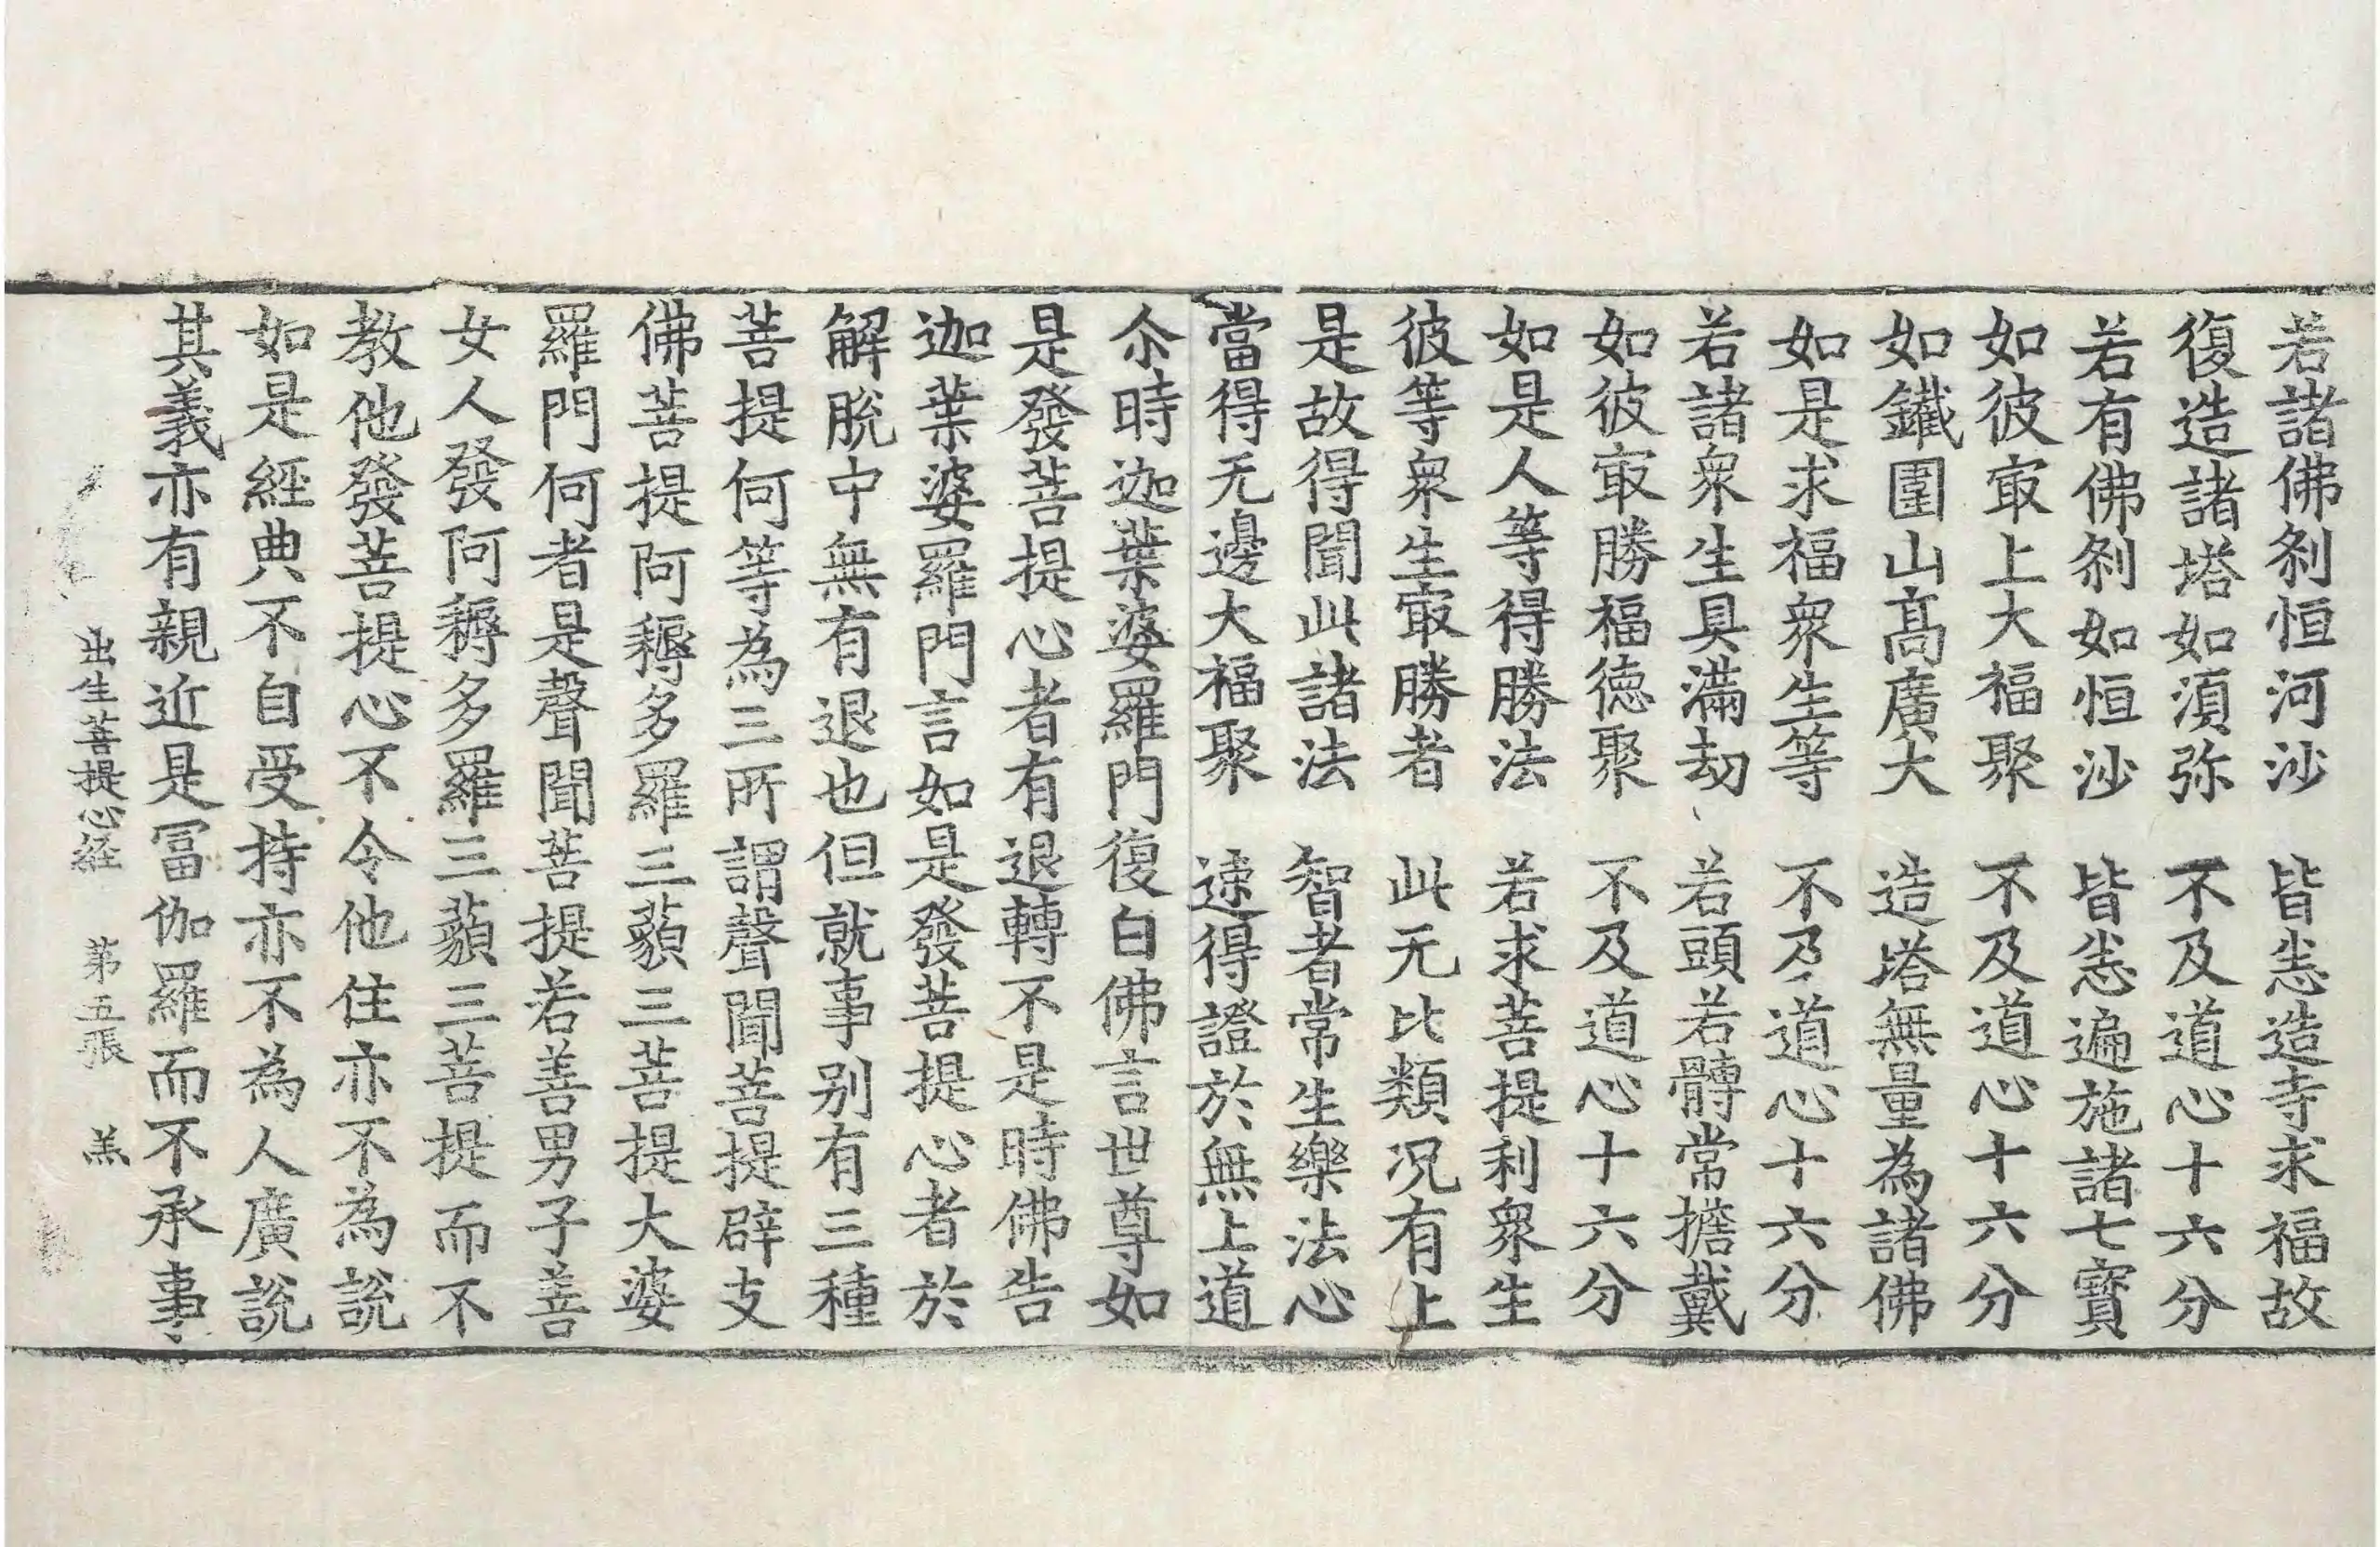 若諸佛刹恒河沙　皆悉造寺求福故
復造諸塔如湏弥　不及道心十六分
若有佛刹如恒沙　皆悉遍施諸七寳
如彼㝡上大福聚　不及道心十六分
如鐵圍山髙廣大　造塔無量為諸佛
如是求福衆生等　不及道心十六分
若諸衆生具滿劫　若頭若髆常擔戴
如彼㝡勝福徳聚　不及道心十六分
如是人等得勝法　若求菩提利衆生
彼等衆生㝡勝者　此无比類况有上
是故得聞此諸法　智者常生樂法心
當得无邊大福聚　速得證於無上道
尒時迦葉婆羅門復白佛言世尊如
是發菩提心者有退轉不是時佛告
迦葉婆羅門言如是發菩提心者於
解脫中無有退也但就事别有三種
菩提何等為三所謂聲聞菩提辟支
佛菩提阿耨多羅三藐三菩提大婆
羅門何者是聲聞菩提若善男子善
女人發阿耨多羅三藐三菩提而不
教他發菩提心不令他住亦不為説
如是經典不自受持亦不為人廣説
其義亦有親近是冨伽羅而不承事
出生菩提心経　第五張　羔